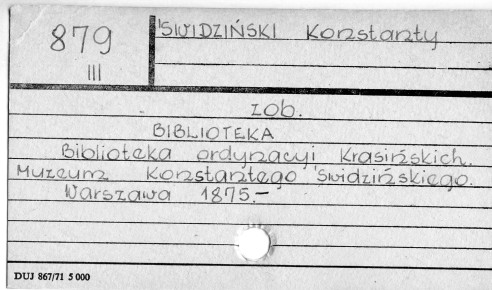 879
III
ŚWIDZIŃSKI Konstanty
zob.
BIBLIOTEKA
Biblioteka ordynacyi Krasińskich.
Muzeum Konstantego Świdzińskiego.
Warszawa 1875.-
DUJ 867/71 5 000